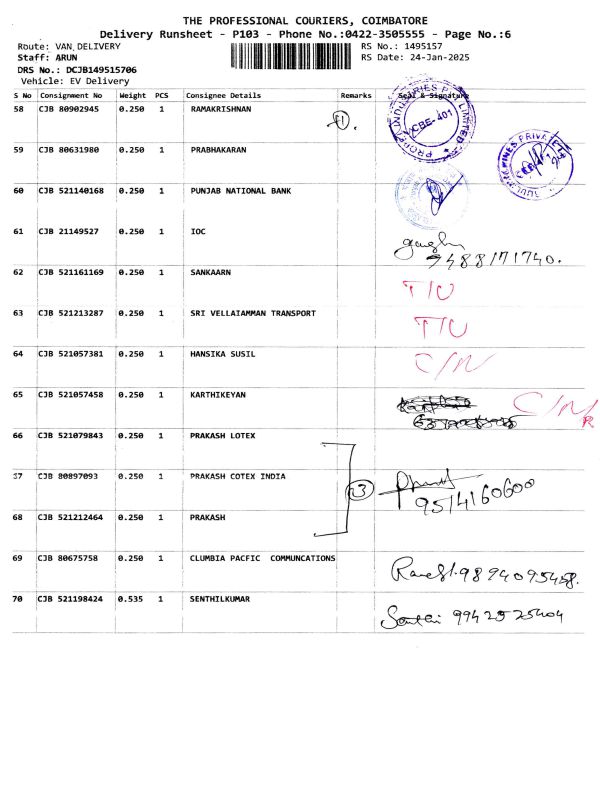 THE PROFESSIONAL COURIERS, COIMBATORE
Delivery Runsheet - P103 - Phone No.:0422-3505555 - Page No.:6
Route: VAN DELIVERY RS No.: 1495157
Staff: ARUN RS Date: 24-Jan-2025
DRS No.: DCJB149515706
Vehicle: EV Delivery
S No Consignment No Weight PCS Consignee Details Remarks Seal & Signature
58 CJB 80902945 0.250 1 RAMAKRISHNAN
CBE-401
PRIVATE
59 CJB 80631980 0.250 1 PRABHAKARAN
60 CJB 521140168 0.250 1 PUNJAB NATIONAL BANK
61 CJB 21149527 0.250 1 IOC
9488171740.
62 CJB 521161169 0.250 1 SANKAARN
T/U
63 CJB 521213287 0.250 1 SRI VELLAIAMMAN TRANSPORT
T/U
64 CJB 521057381 0.250 1 HANSIKA SUSIL
C/N
65 CJB 521057458 0.250 1 KARTHIKEYAN
C/N
R
66 CJB 521079843 0.250 1 PRAKASH LOTEX
37 CJB 80897093 0.250 1 PRAKASH COTEX INDIA
3 9514160600
68 CJB 521212464 0.250 1 PRAKASH
69 CJB 80675758 0.250 1 CLUMBIA PACFIC COMMUNCATIONS
9894095458.
70 CJB 521198424 0.535 1 SENTHILKUMAR
9942525404